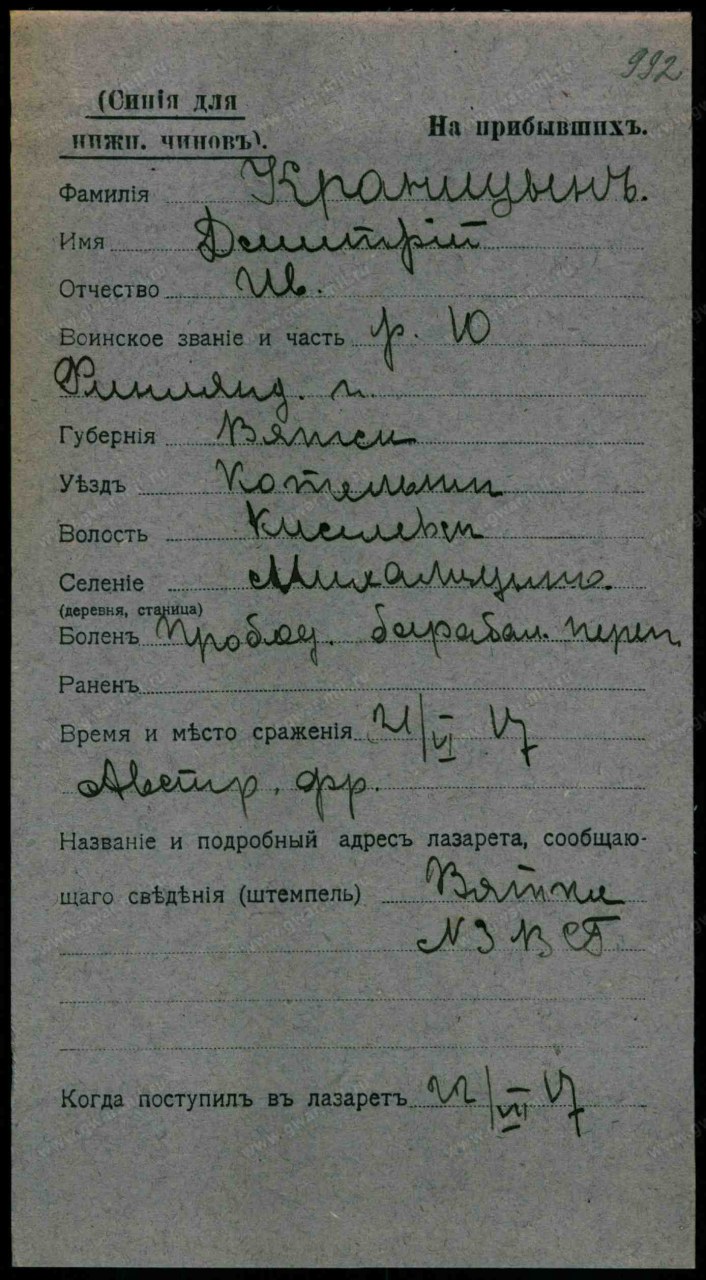 992
(Синія для
нижн. чиновъ).
На прибывшихъ.
Фамилія Краницынъ.
Имя Дмитрій
Отчество Ив.
Воинское званіе и часть р. 10
Финлянд. п.
Губернія Вятск
Уѣздъ Котельнич
Волость Киселевск
Селеніе Михалицыно.
(деревня, станица)
Боленъ Пробод. барабан. переп.
Раненъ
Время и мѣсто сраженія 21/VI 17
Австр. фр.
Названіе и подробный адресъ лазарета, сообщаю-
щаго свѣдѣнія (штемпель) Вятка
N 3 В Г
Когда поступилъ въ лазаретъ 22/VII 17